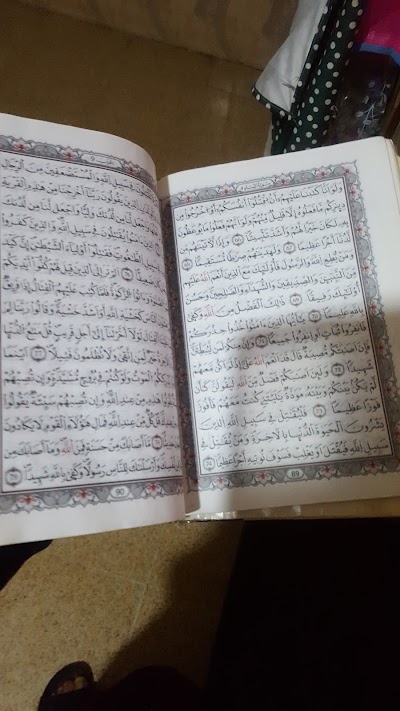 سورة النساء
وَلَوْ أَنَّا كَتَبْنَا عَلَيْهِمْ أَنِ ٱقْتُلُوٓا۟ أَنفُسَكُمْ أَوِ ٱخْرُجُوا۟ مِن
دِيَـٰرِكُم مَّا فَعَلُوهُ إِلَّا قَلِيلٌ مِّنْهُمْ وَلَوْ أَنَّهُمْ فَعَلُوا۟ مَا يُوعَظُونَ
بِهِۦ لَكَانَ خَيْرًا لَّهُمْ وَأَشَدَّ تَثْبِيتًا ٦٦ وَإِذًا لَّـَٔاتَيْنَـٰهُم مِّن
لَّدُنَّآ أَجْرًا عَظِيمًا ٦٧ وَلَهَدَيْنَـٰهُمْ صِرَٰطًا مُّسْتَقِيمًا ٦٨
وَمَن يُطِعِ ٱللَّهَ وَٱلرَّسُولَ فَأُو۟لَـٰٓئِكَ مَعَ ٱلَّذِينَ أَنْعَمَ ٱللَّهُ عَلَيْهِم
مِّنَ ٱلنَّبِيِّـۧنَ وَٱلصِّدِّيقِينَ وَٱلشُّهَدَآءِ وَٱلصَّـٰلِحِينَ وَحَسُنَ
أُو۟لَـٰٓئِكَ رَفِيقًا ٦٩ ذَٰلِكَ ٱلْفَضْلُ مِنَ ٱللَّهِ وَكَفَىٰ
بِٱللَّهِ عَلِيمًا ٧٠ يَـٰٓأَيُّهَا ٱلَّذِينَ ءَامَنُوا۟ خُذُوا۟ حِذْرَكُمْ
فَٱنفِرُوا۟ ثُبَاتٍ أَوِ ٱنفِرُوا۟ جَمِيعًا ٧١ وَإِنَّ مِنكُمْ لَمَن لَّيُبَطِّئَنَّ
فَإِنْ أَصَـٰبَتْكُم مُّصِيبَةٌ قَالَ قَدْ أَنْعَمَ ٱللَّهُ عَلَىَّ إِذْ لَمْ أَكُن مَّعَهُمْ
شَهِيدًا ٧٢ وَلَئِنْ أَصَـٰبَكُمْ فَضْلٌ مِّنَ ٱللَّهِ لَيَقُولَنَّ كَأَن
لَّمْ تَكُنۢ بَيْنَكُمْ وَبَيْنَهُۥ مَوَدَّةٌ يَـٰلَيْتَنِى كُنتُ مَعَهُمْ فَأَفُوزَ
فَوْزًا عَظِيمًا ٧٣ فَلْيُقَـٰتِلْ فِى سَبِيلِ ٱللَّهِ ٱلَّذِينَ
يَشْرُونَ ٱلْحَيَوٰةَ ٱلدُّنْيَا بِٱلْـَٔاخِرَةِ وَمَن يُقَـٰتِلْ فِى
سَبِيلِ ٱللَّهِ فَيُقْتَلْ أَوْ يَغْلِبْ فَسَوْفَ نُؤْتِيهِ أَجْرًا عَظِيمًا ٧٤
89
فِى سَبِيلِ ٱللَّهِ وَٱلْمُسْتَضْعَفِينَ مِنَ ٱلرِّجَالِ
يَقُولُونَ رَبَّنَآ أَخْرِجْنَا مِنْ هَـٰذِهِ ٱلْقَرْيَةِ
وَٱجْعَل لَّنَا مِن لَّدُنكَ وَلِيًّا وَٱجْعَل لَّنَا مِن لَّدُنكَ
يُقَـٰتِلُونَ فِى سَبِيلِ ٱللَّهِ وَٱلَّذِينَ كَفَرُوا۟
فَقَـٰتِلُوٓا۟ أَوْلِيَآءَ ٱلشَّيْطَـٰنِ إِنَّ كَيْدَ
أَلَمْ تَرَ إِلَى ٱلَّذِينَ قِيلَ لَهُمْ كُفُّوٓا۟ أَيْدِيَكُمْ
وَءَاتُوا۟ ٱلزَّكَوٰةَ فَلَمَّا كُتِبَ عَلَيْهِمُ ٱلْقِتَالُ إِذَا فَرِيقٌ
كَخَشْيَةِ ٱللَّهِ أَوْ أَشَدَّ خَشْيَةً وَقَالُوا۟ رَبَّنَا لِمَ
لَوْلَآ أَخَّرْتَنَآ إِلَىٰٓ أَجَلٍ قَرِيبٍ قُلْ مَتَـٰعُ ٱلدُّنْيَا
لِّمَنِ ٱتَّقَىٰ وَلَا تُظْلَمُونَ فَتِيلًا ٧٧ أَيْنَمَا
ٱلْمَوْتُ وَلَوْ كُنتُمْ فِى بُرُوجٍ مُّشَيَّدَةٍ وَإِن تُصِبْهُمْ
مِنْ عِندِ ٱللَّهِ وَإِن تُصِبْهُمْ سَيِّئَةٌ يَقُولُوا۟
قُلْ كُلٌّ مِّنْ عِندِ ٱللَّهِ فَمَالِ هَـٰٓؤُلَآءِ ٱلْقَوْمِ لَا يَكَادُونَ
٧٨ مَّآ أَصَابَكَ مِنْ حَسَنَةٍ فَمِنَ ٱللَّهِ وَمَآ أَصَابَكَ مِن
وَأَرْسَلْنَـٰكَ لِلنَّاسِ رَسُولًا وَكَفَىٰ بِٱللَّهِ شَهِيدًا ٧٩
90